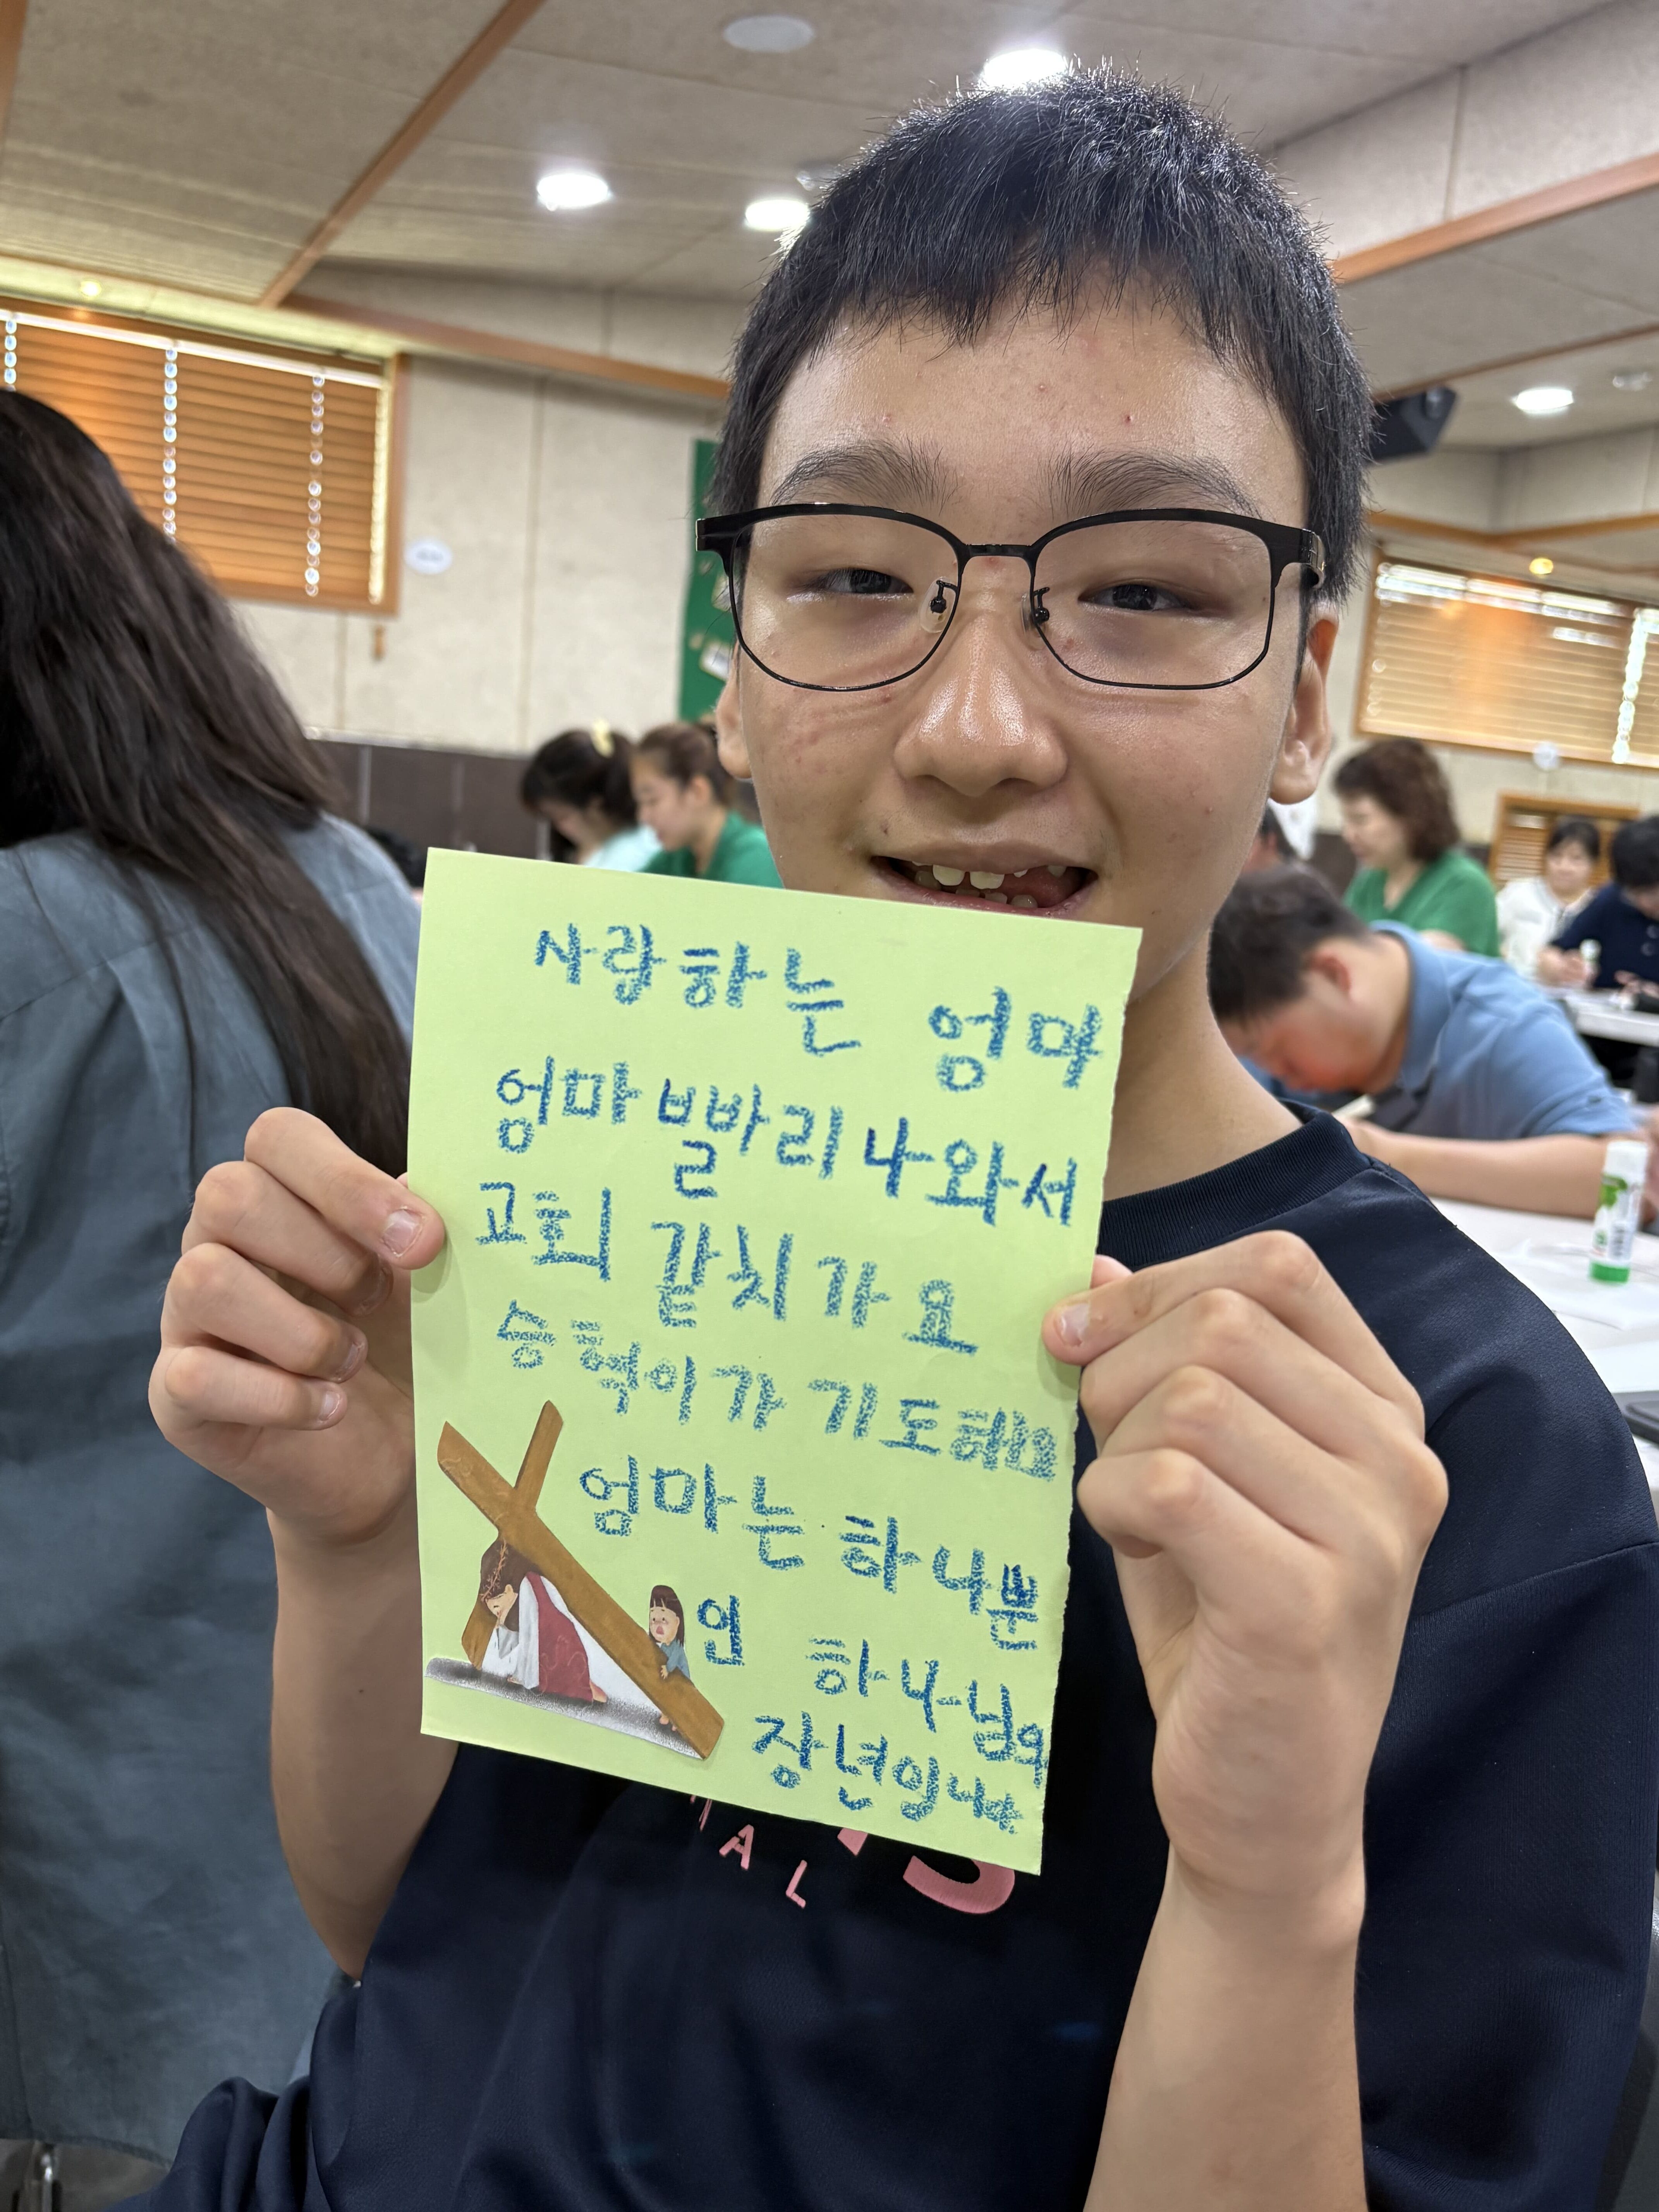 사랑하는 엄마
엄마 빨바리 나와서
교회 같치 가요
승혁이가 기도해요
엄마는 하나뿐
인 하나님의
장년입니다
AL